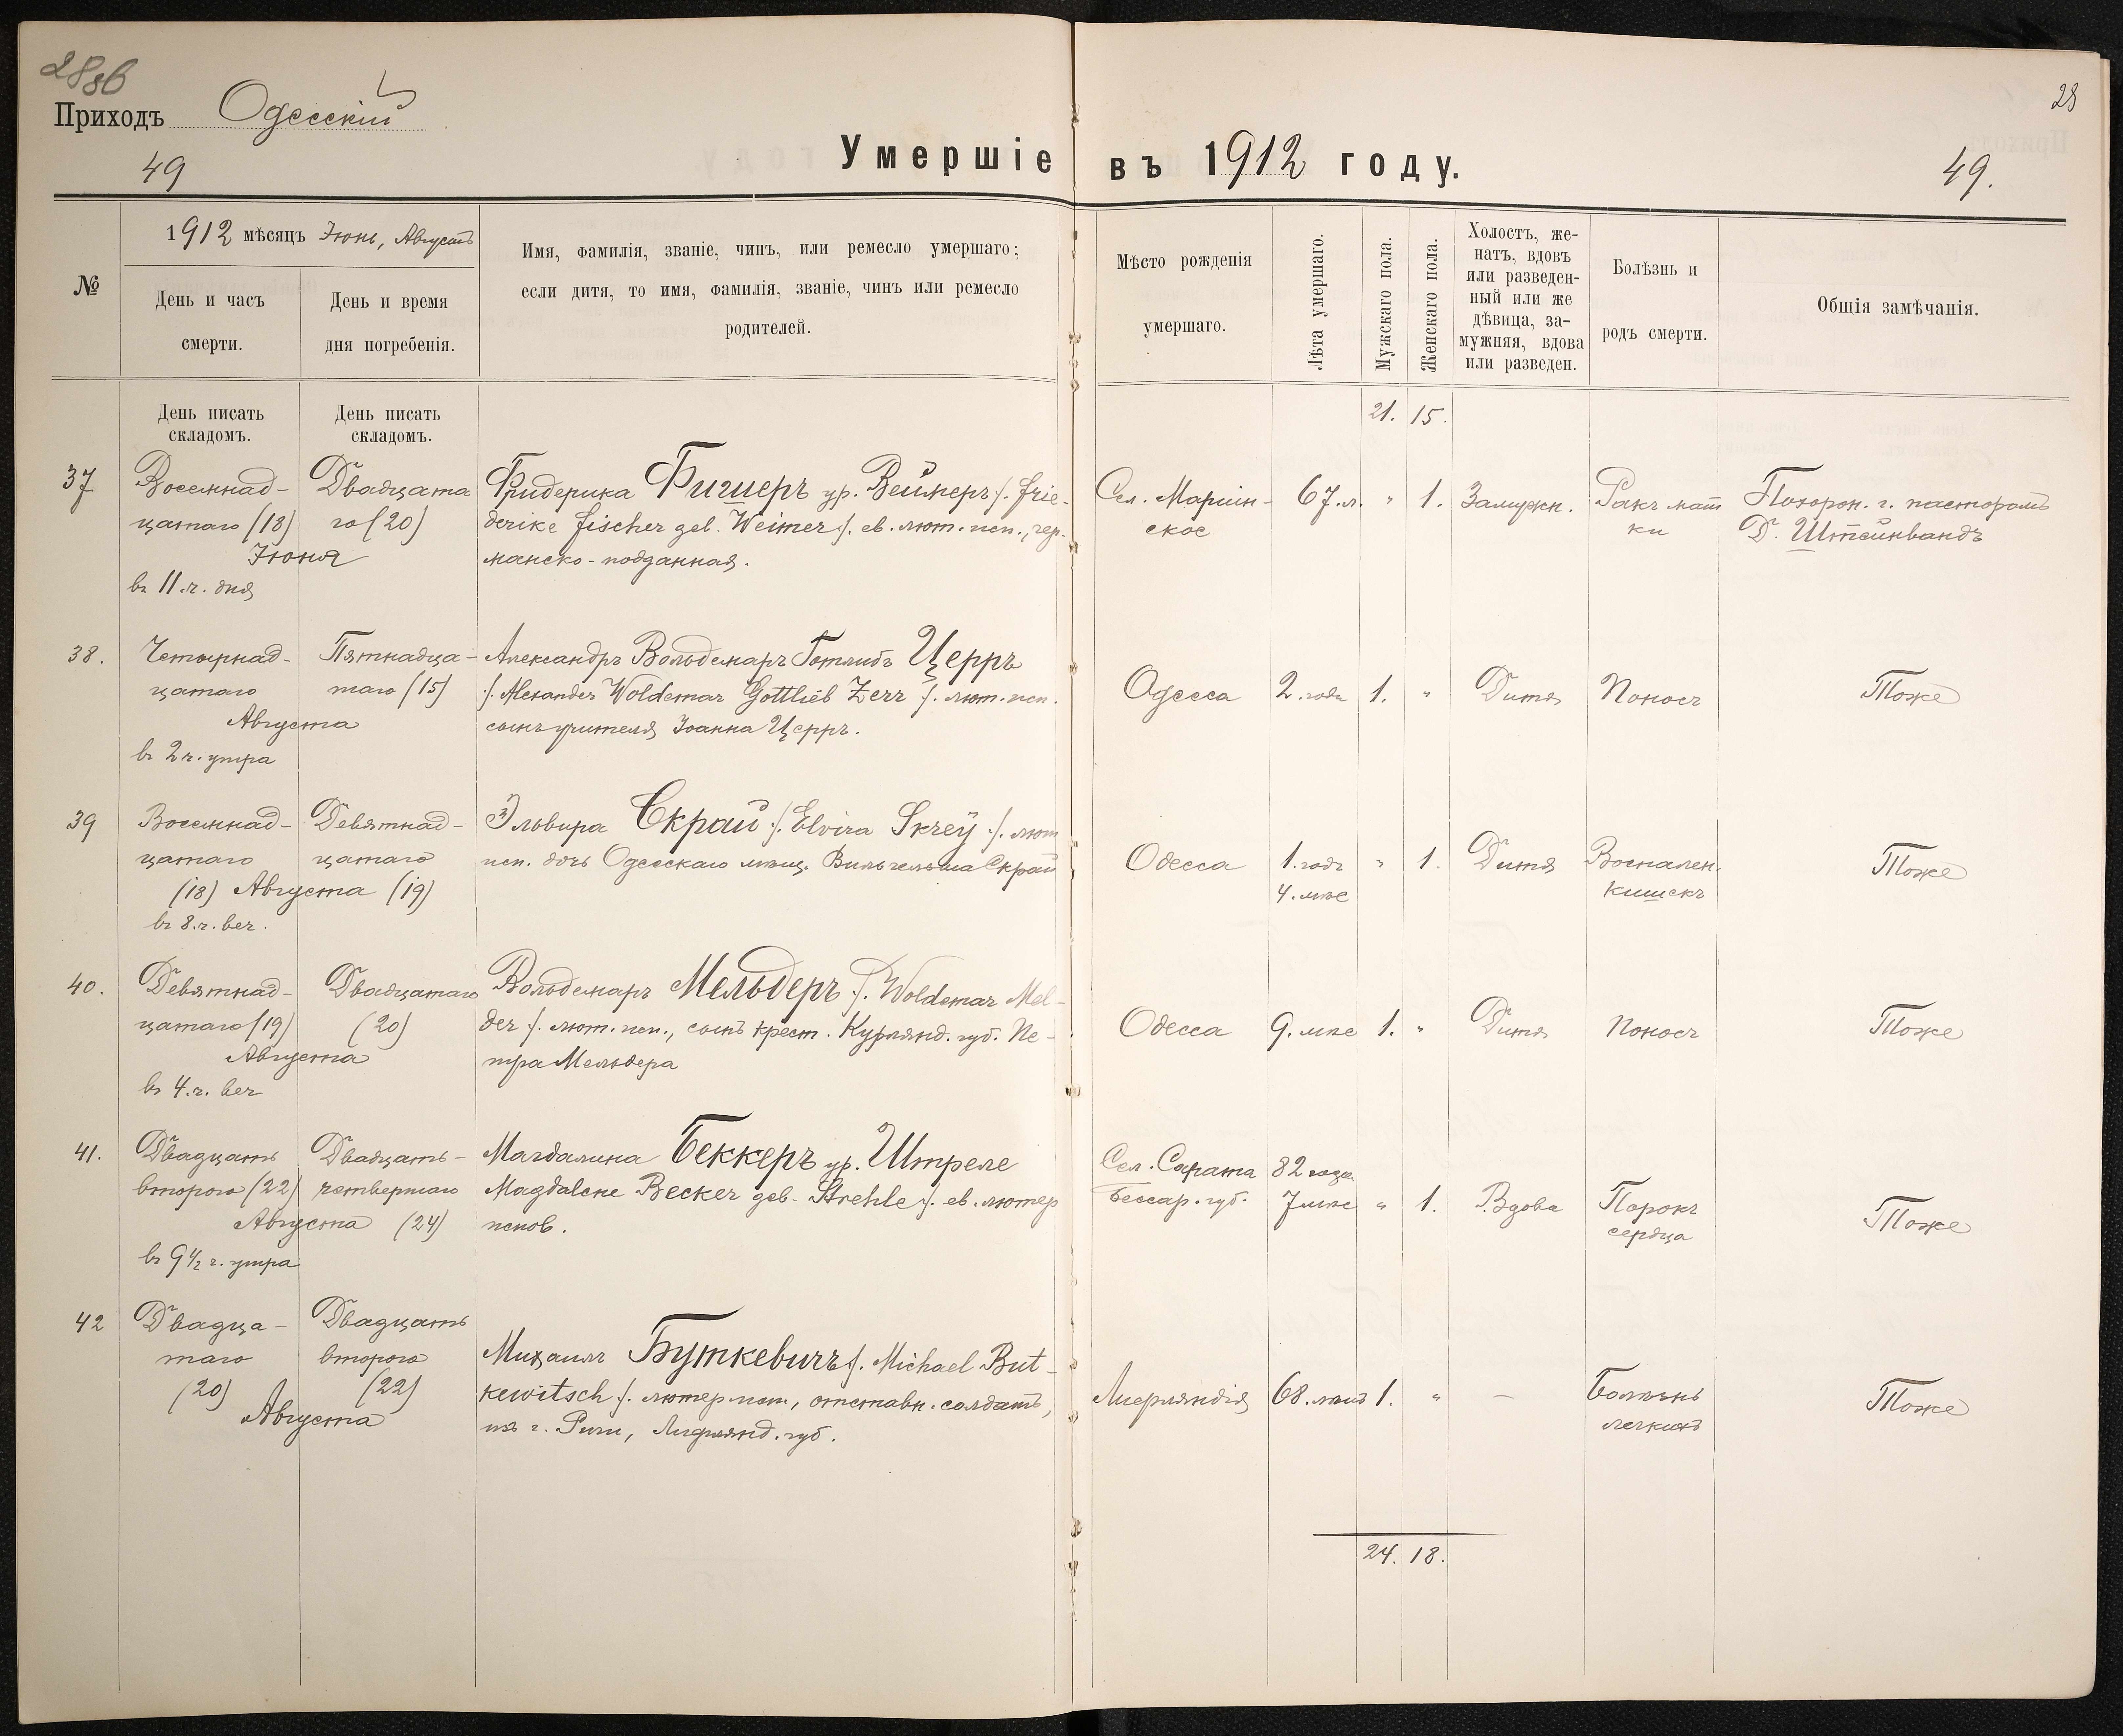 288б
Приходъ Одесскій
28
Умершіе въ 1912 году.
49
49.
№
1912 мѣсяцъ Іюнь, Августъ
День и часъ смерти.
День и время дня погребенія.
Имя, фамилія, званіе, чинъ, или ремесло умершаго;
если дитя, то имя, фамилія, званіе, чинъ или ремесло
родителей.
Мѣсто рожденія
умершаго.
Лѣта умершаго.
Мужскаго пола.
Женскаго пола.
Холостъ, же-
натъ, вдовъ
или разведен-
ный или же
дѣвица, за-
мужняя, вдова
или разведен.
Болѣзнь и
родъ смерти.
Общія замѣчанія.
День писать
складомъ.
День писать
складомъ.
21. 15.
37
Восемнад-
цатаго (18)
Іюня
въ 11 ч. дня
Двадцата
го (20)
Фридерика Фишеръ ур. Веймеръ /. Frie-
derike Fischer geb. Weimer /. ев. лют. исп., гер-
манско-подданная.
Сел. Маріин-
ское
67 л. " 1. Замужн.
Ракъ мат
ки
Похорон. г. пасторомъ
Д. Штейнвандъ
38.
Четырнад-
цатаго
Августа
въ 2 ч. утра
Пятнадца-
таго (15)
Александръ Вольдемаръ Готлибъ Церръ
/. Alexander Woldemar Gottlieb Zerr /. лют. исп.
сынъ учителя Іоанна Церръ.
Одесса 2. года 1. " Дитя Поносъ Тоже
39
Восемнад-
цатаго
(18) Августа (19)
въ 8. ч. веч.
Девятнад-
цатаго
Эльвира Скрай /. Elvira Skreÿ /. лют
исп. дочь Одесскаго мѣщ. Вильгельма Скрай
Одесса
1. годъ
4. мѣс
" 1. Дитя
Воспален.
кишекъ
Тоже
40.
Девятнад-
цатаго (19)
Августа
въ 4. ч. веч
Двадцатаго
(20)
Вольдемаръ Мельдеръ /. Woldemar Mel-
der /. лют. исп., сынъ крест. Курлянд. губ. Пе-
тра Мельдера
Одесса 9. мѣс 1. " Дитя Поносъ Тоже
41.
Двадцать
второго (22)
Августа (24)
въ 9 1/2 ч. утра
Двадцать-
четвертаго
Магдалина Беккеръ ур. Штреле
Magdalene Becker geb. Strehle /. ев. лютер
испов.
Сел. Сарата
Бессар. губ.
82 года
7 мѣс
" 1. Вдова
Порокъ
сердца
Тоже
42
Двадца-
таго
(20)
Августа
Двадцать
второго
(22)
Михаилъ Буткевичъ /. Michael But-
kewitsch /. лютер исп., отставн. солдатъ,
изъ г. Риги, Лифлянд. губ.
Лифляндія 68. лѣтъ 1. " —
Болѣзнь
легкихъ
Тоже
24. 18.